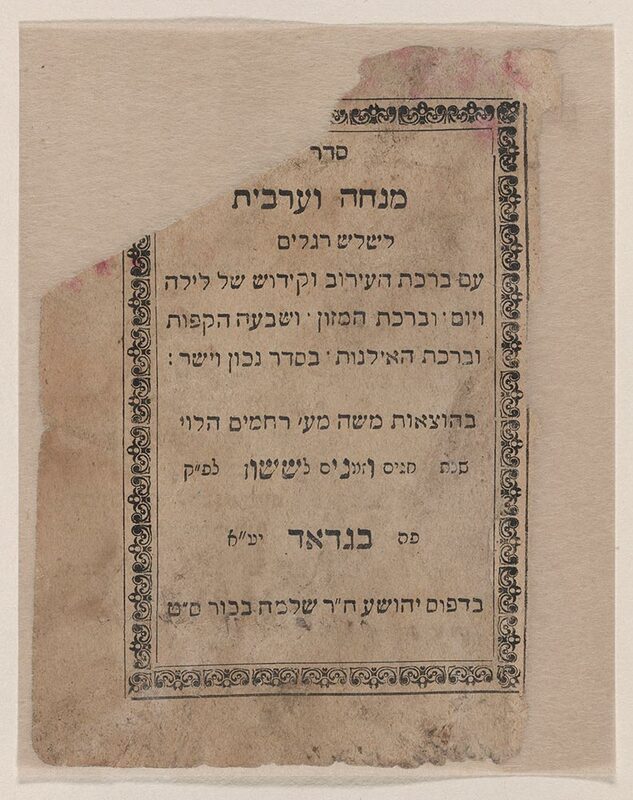 סדר
מנחה וערבית
לשלש רגלים
עם ברכת העירוב וקידוש של לילה
ויום · וברכת המזון · ושבעה הקפות
וברכת האילנות · בסדר נכון וישר :
בהוצאות משה מע׳ רחמים הלוי
שנת חגים וזמנים לששון לפ״ק
פס בגדאד יע״א
בדפוס יהושע ח״ר שלמה בכור ס״ט